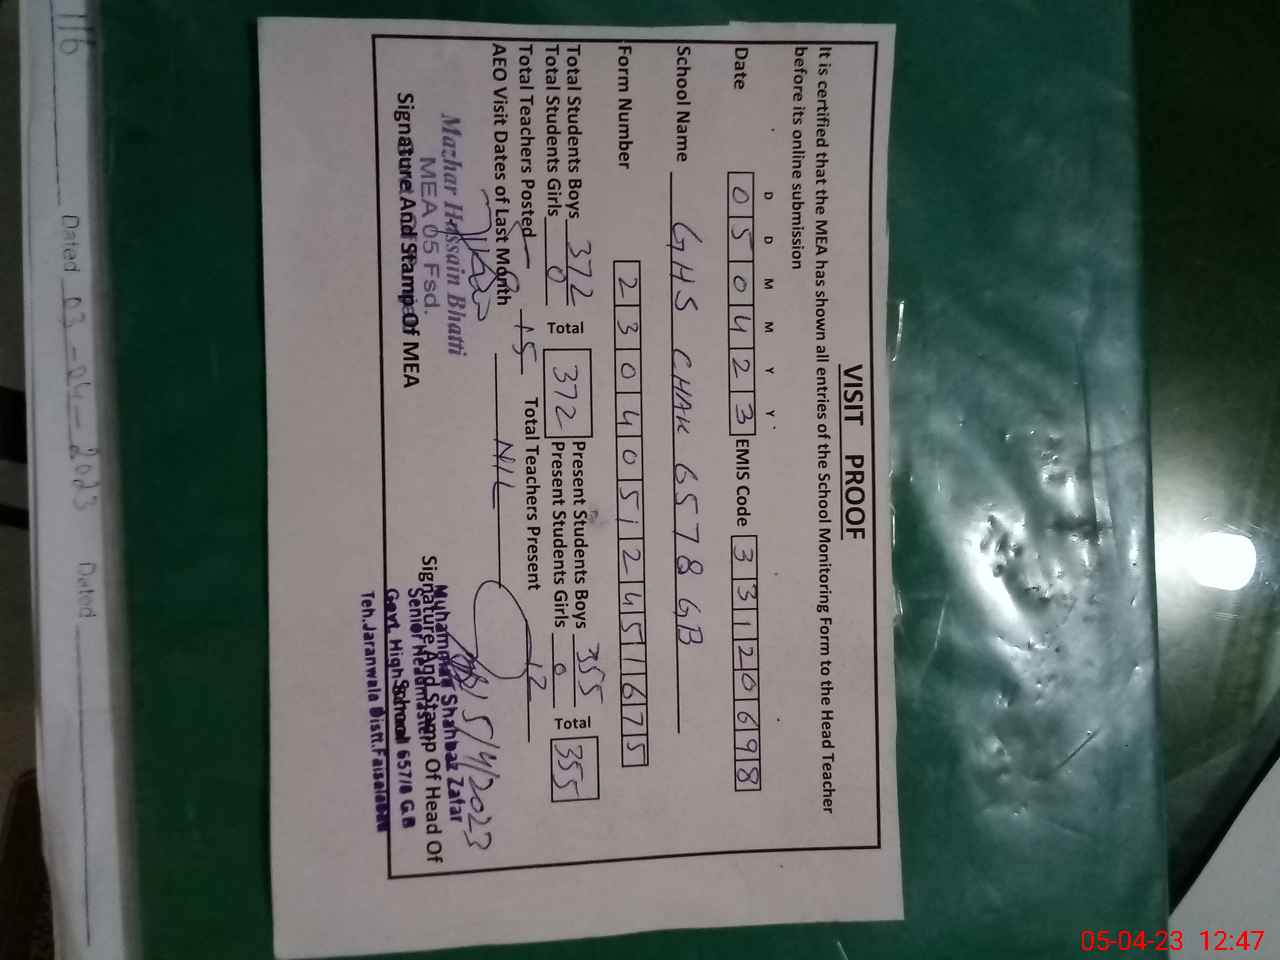 VISIT PROOF
It is certified that the MEA has shown all entries of the School Monitoring Form to the Head Teacher
before its online submission
D D M M Y Y
Date 0 5 0 4 2 3 EMIS Code 3 3 1 2 0 6 9 8
School Name GHS CHAK 6578 GB
Form Number 2 3 0 4 0 5 1 2 4 5 1 6 7 5
Total Students Boys 372 Total 372 Present Students Boys 355 Total 355
Total Students Girls 0 Present Students Girls 0
Total Teachers Posted 15 Total Teachers Present 12
AEO Visit Dates of Last Month NIL
Mazhar Hussain Bhatti
MEA 05 Fsd.
Signature And Stamp Of MEA
5/4/2023
Muhammad Shahbaz Zafar
Signature And Stamp Of Head Of
Senior Headmaster
School
Govt. High School 657/8 G.B
Teh.Jaranwala Distt.Faisalabad
116 Dated 03-04-2023 Dated
05-04-23 12:47